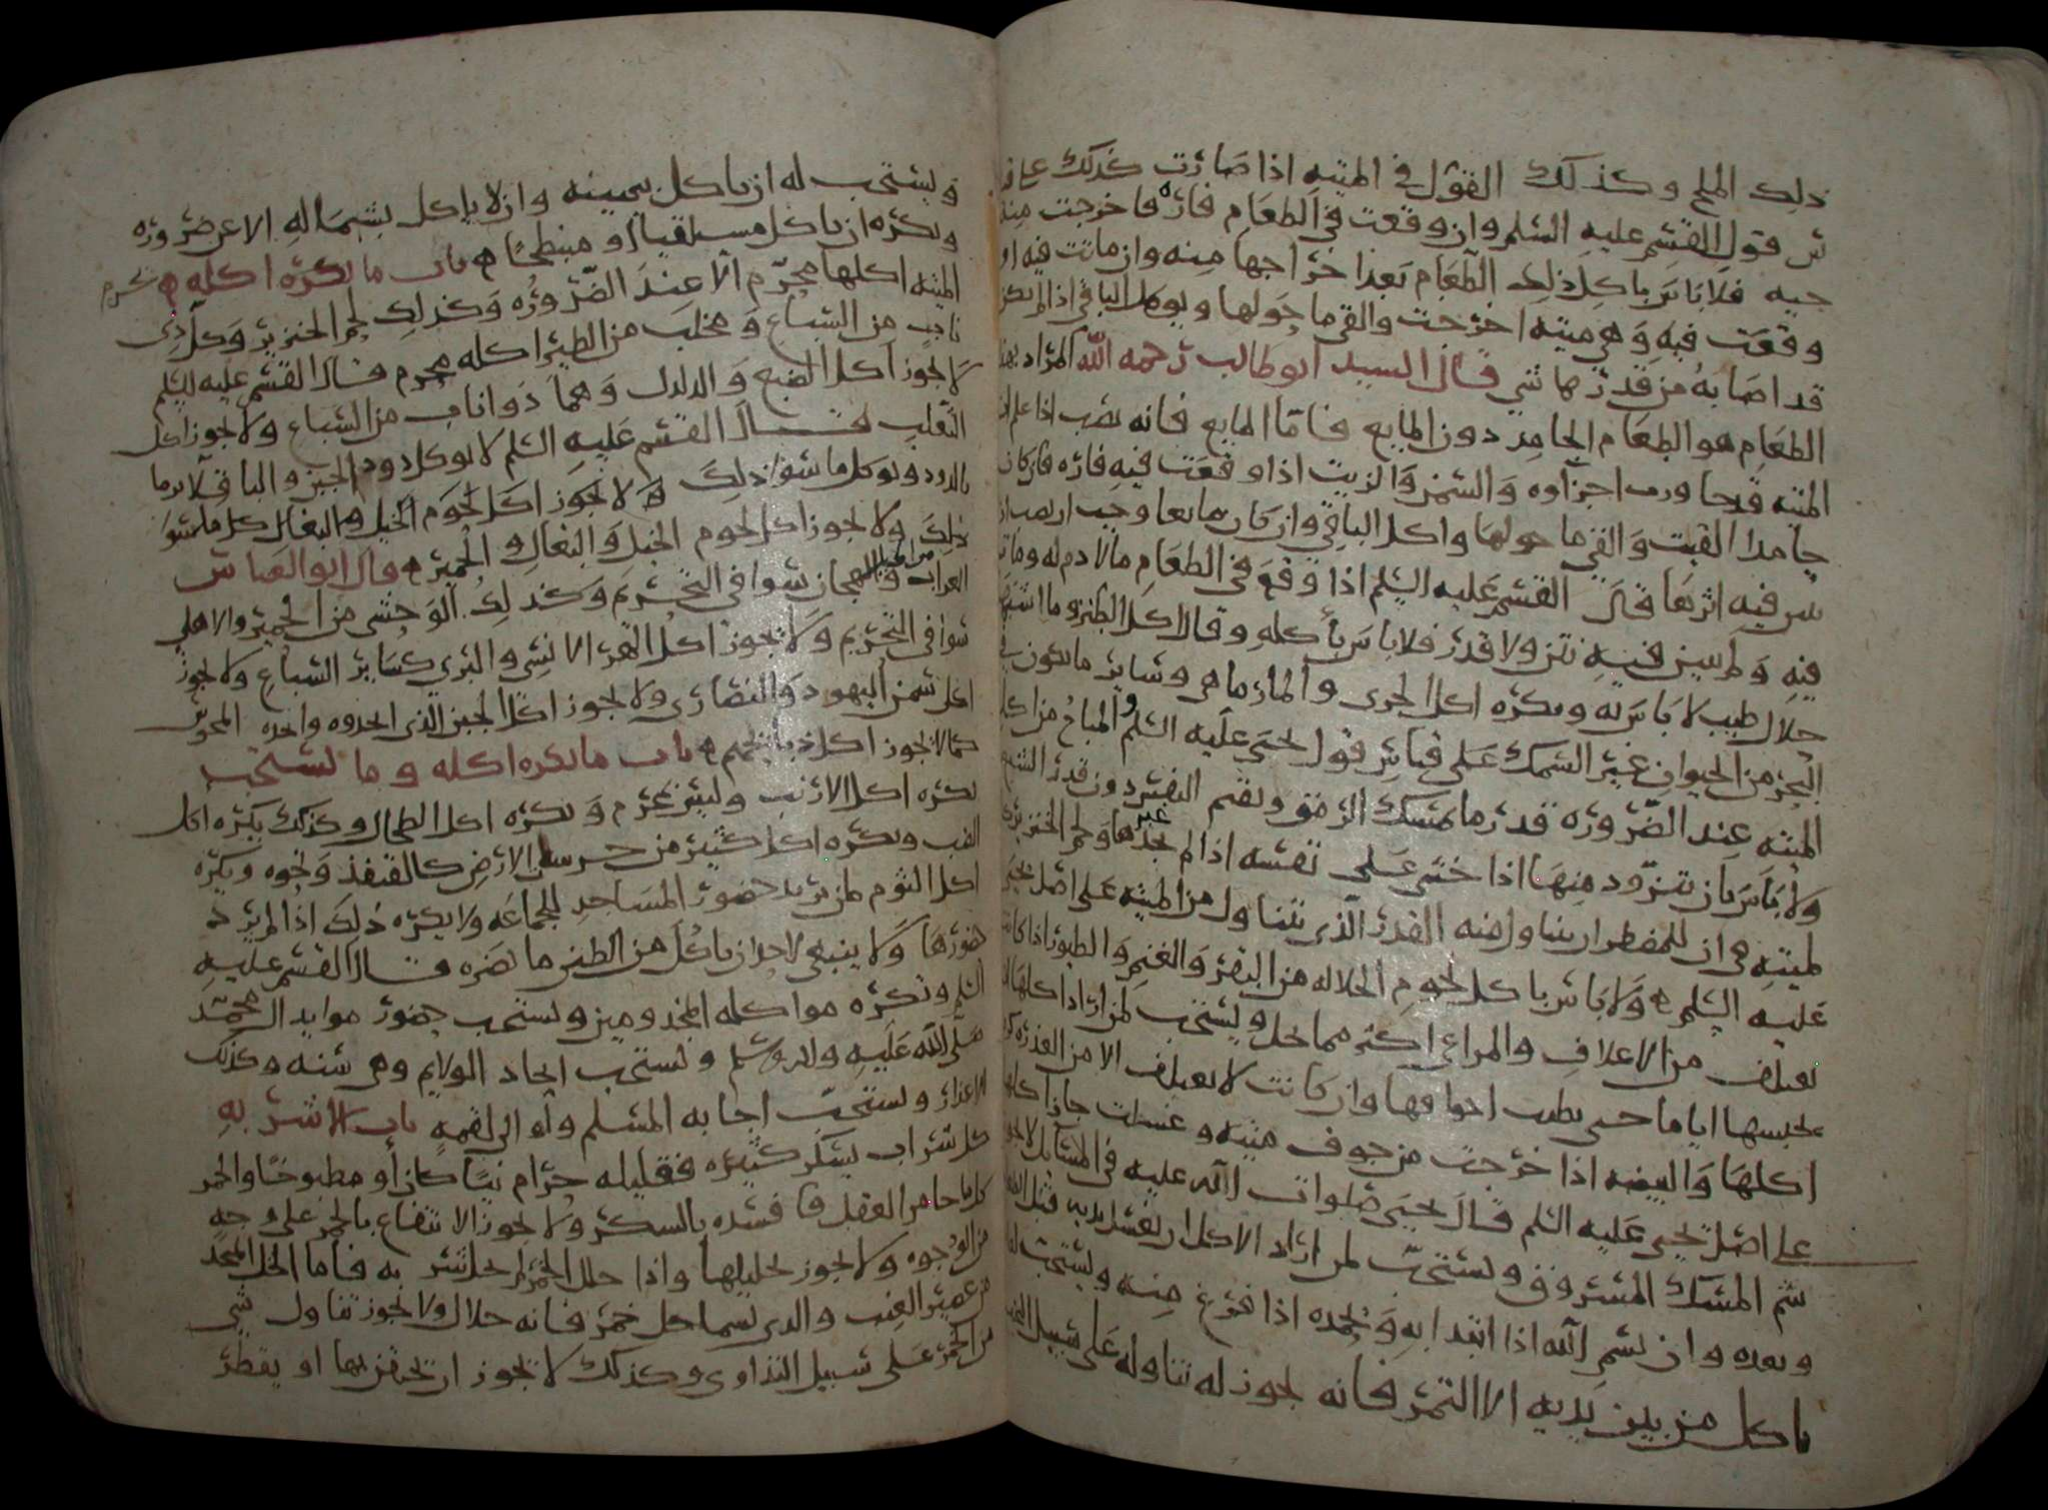 ذلك الملح وكذلك القول في الميته اذا صارت كذلك على
س قول القسم عليه السلم وان وقعت في الطعام فاره فاخرجت منه
حيه فلا باس باكل ذلك الطعام بعد اخراجها منه وان ماتت فيه او
وقعت فيه وهي ميته اخرجت والقي ما حولها ويوكل الباقي اذا لم يكن
قد اصابه من قذرها شي قال السيد ابو طالب رحمه الله المراد بهذا
الطعام هو الطعام الجامد دون المايع فاما المايع فانه يصب اذا علم ان
الميته قد جاورت اجزاوه والسمن والزيت اذا وقعت فيه فاره فان كان
جامدا القيت والقي ما حولها واكل الباقي وان كان مايعا وجب ان يصب
فيه اثرها قال القسم عليه السلم اذا وقع في الطعام ما لا دم له ومات
فيه ولم يبين فيه نتن ولا قذر فلا باس باكله وقال اكل الطنز وما اشبهه
حلال طيب لا باس به ويكره اكل الجري والمارماهي وساير ما يكون في
البحر من الحيوان غير السمك على قياس قول يحيى عليه السلم والمباح من اكل
الميته عند الضروره قدر ما يمسك الرمق ويقيم النفس دون قدر الشبع
ولا باس بان يتزود منها اذا خشي على نفسه اذا لم يجد غيرها ولحم الخنزير
لميته في ان للمضطر ان يتناول منه القدر الذي يتناول من الميته على اصل يحيى
عليه السلم ه ولا باس باكل لحوم الجلاله من البقر والغنم والطيور اذا كانت
تعتلف من الاعلاف والمراعي اكثر مما تجل ويستحب لمن اراد اكلها ان
يحبسها اياما حتى يطيب اجوافها وان كانت لا تعتلف الا من العذره
اكلها والبيضه اذا خرجت من جوف ميته وغسلت جاز اكلها
على اصل يحيى عليه السلم قال يحيى صلوات الله عليه في المسايل لا يجوز
شم المسك المسروق ويستحب لمن اراد الاكل ان يغسل يديه قبل
وبعده وان يسم الله اذا ابتدا به ويحمده اذا فرغ منه ويستحب
ياكل من بين يديه الا التمر فانه يجوز له تناوله على سبيل
ويستحب له ان ياكل بيمينه وان لا ياكل بشماله الا عن ضروره
ويكره ان ياكل مستلقيا او منبطحا ه باب ما يكره اكله ه يحرم
الميته اكلها محرم الا عند الضروره وكذلك لحم الخنزير وكل ذي
ناب من السباع ومخلب من الطير اكله محرم قال القسم عليه السلم
لا يجوز اكل الضبع والدلدل وهما ذوا ناب من السباع ولا يجوز اكل
الثعلب قال القسم عليه السلم لا يوكل دود الجبن والباقلا برما
بالدود ويوكل ما سوا ذلك ه لا يجوز اكل لحوم الخيل والبغال كل ما سوا
ذلك ولا يجوز اكل لحوم الخيل والبغال والحمير ه قال ابو العباس
العراب من الخيل والهجان سوا في التحريم وكذلك الوحشي من الحمير والاهلي
سوا في التحريم ولا يجوز اكل الهر الانسي والبري كساير السباع ولا يجوز
اكل سمن اليهود والنصارى ولا يجوز اكل الجبن الذي اتخذوه
كما لا يجوز اكل ذبايحهم ه باب ما يكره اكله وما يستحب
يكره اكل الارنب وليس بمحرم ويكره اكل الطحال وكذلك يكره اكل
الضب ويكره اكل كثير من حرسات الارض كالقنفذ ونحوه ويكره
اكل الثوم لمن يريد حضور المساجد للجماعه ولا يكره ذلك اذا لم يرد
حضورها ولا ينبغي لاحد ان ياكل من الطين ما يضره قال القسم عليه
السلم ويكره مواكله المجذومين ويستحب حضور موايد ال محمد
صلى الله عليه وله وسلم ويستحب اتخاذ الولايم وهي سنه وكذلك
الاعذار ويستحب اجابه المسلم ولو الى لقمه باب الاشربه
كل شراب يسكر كثيره فقليله حرام نيا كان او مطبوخا والخمر
كل ما خامر العقل فافسده بالسكر ولا يجوز الانتفاع بالخمر على وجه
من الوجوه ولا يجوز تخليلها واذا خلل الخمر لم يحل شربه فاما الخل المتخذ
من عصير العنب والذي يسما خل خمر فانه حلال ولا يجوز تناول شي
من الخمر على سبيل التداوي وكذلك لا يجوز ان يحتقن بها او يقطر